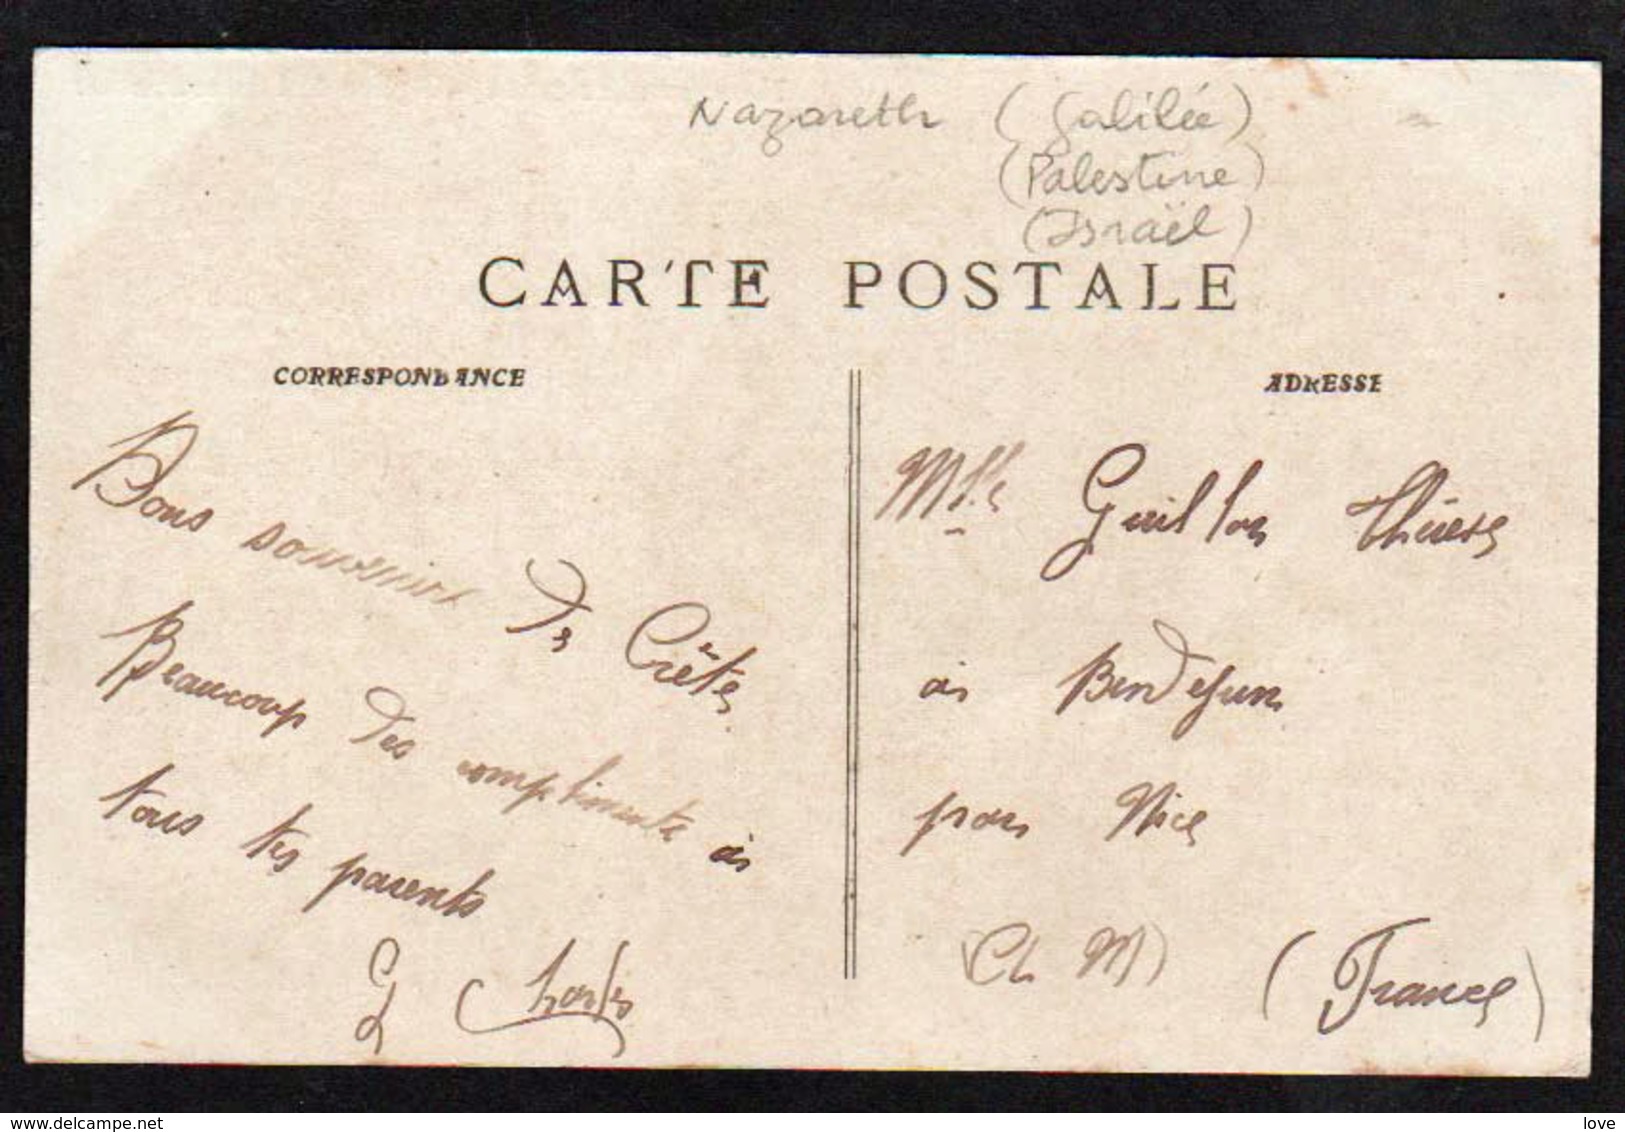 Nazareth (Galilée)
(Palestine)
(Israël)
CARTE POSTALE
CORRESPONDANCE
Bons souvenirs de Crête
Beaucoup des compliments à
tous tes parents
Charles
ADRESSE
Mlle Guillon Thérèse
à Bendejun
par Nice
(France)
© delcampe.net
love